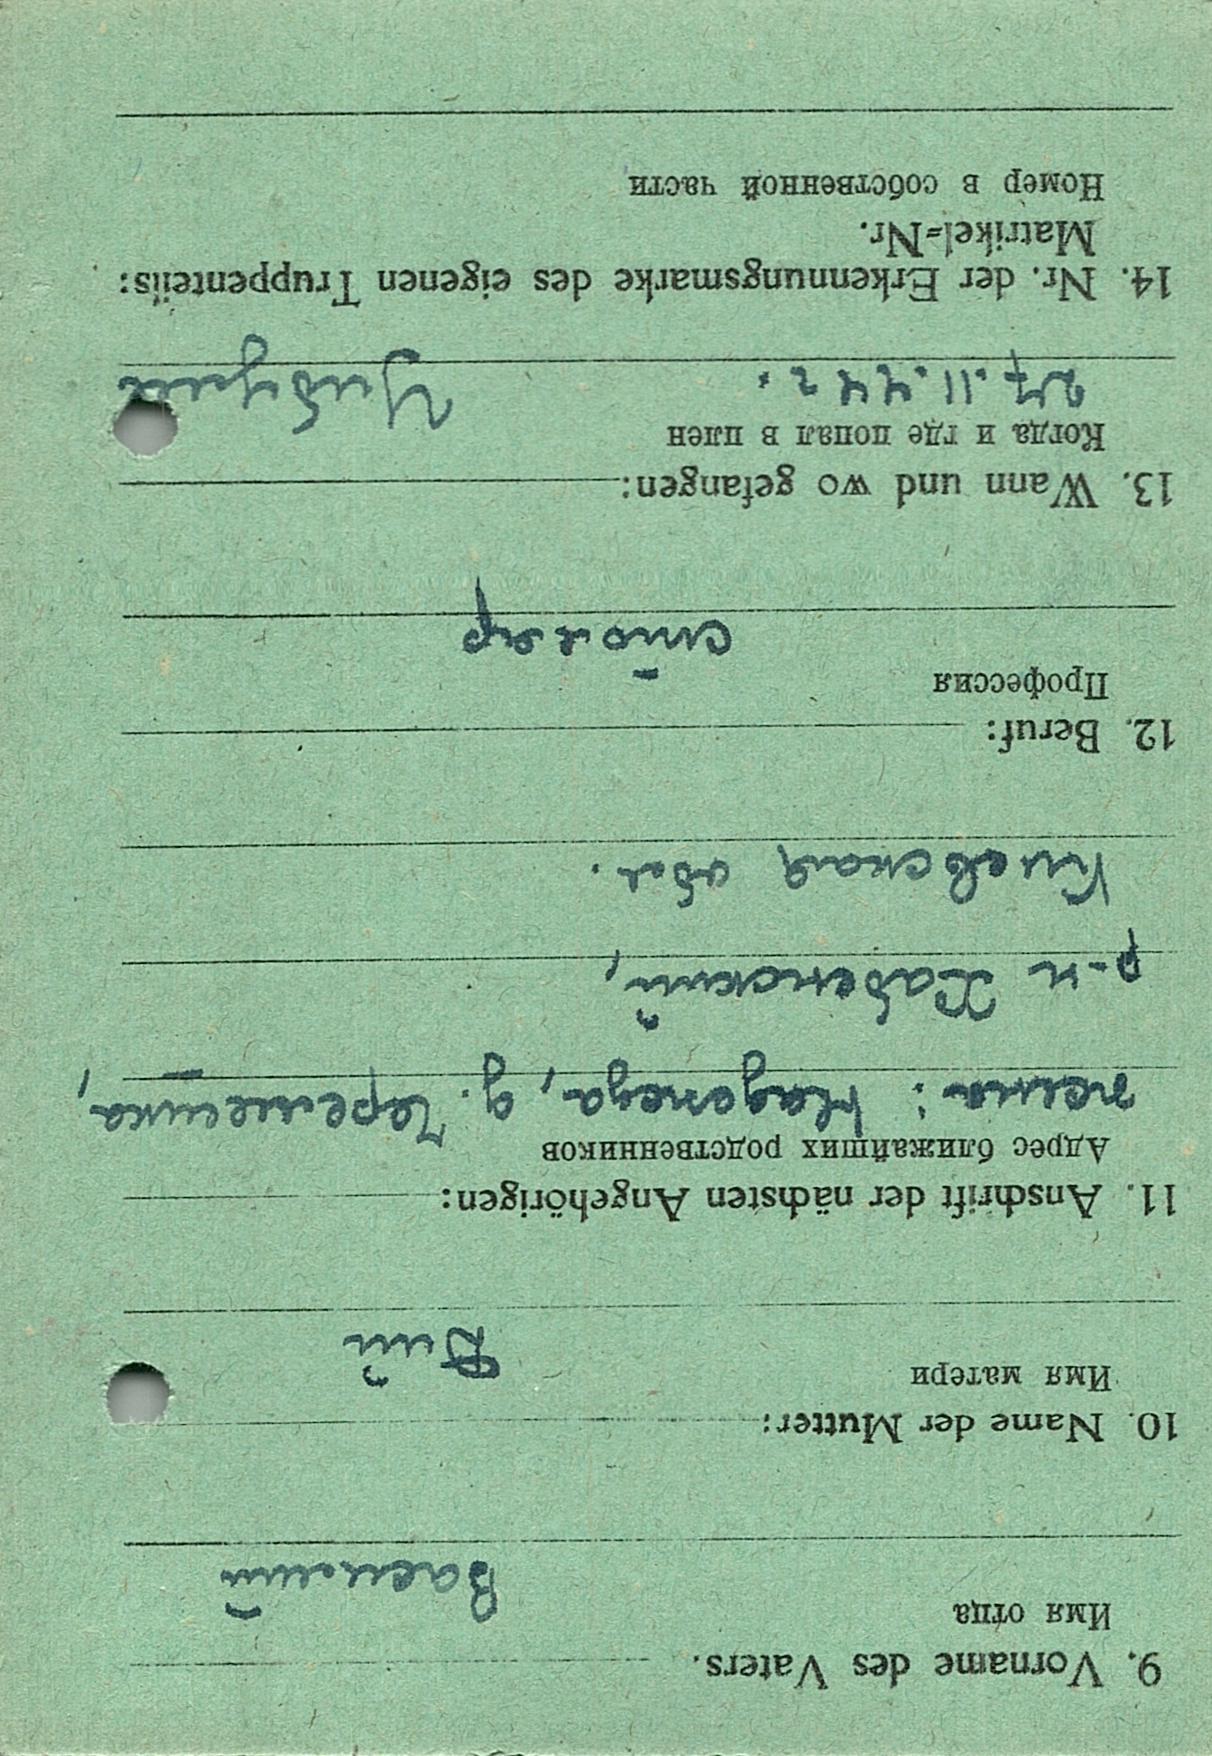 9. Vorname des Vaters.
Имя отца
Василий
10. Name der Mutter:
Имя матери
Вий
11. Anschrift der nächsten Angehörigen:
Адрес ближайших родственников
жена: Надежда, д. Черемошна,
р-н Хабенский,
Киевская обл.
12. Beruf:
Профессия
столяр
13. Wann und wo gefangen:
Когда и где попал в плен
27.11.442. Цибулев
14. Nr. der Erkennungsmarke des eigenen Truppenteils:
Matrikel-Nr.
Номер в собственной части